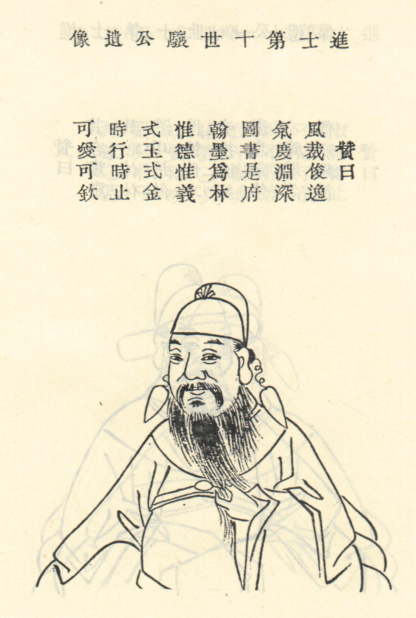 進士第十世驪公遺像
贊曰
風裁俊逸
氣慶淵深
圖書是府
翰墨爲林
惟德惟義
式玉式金
時行時止
可愛可欽